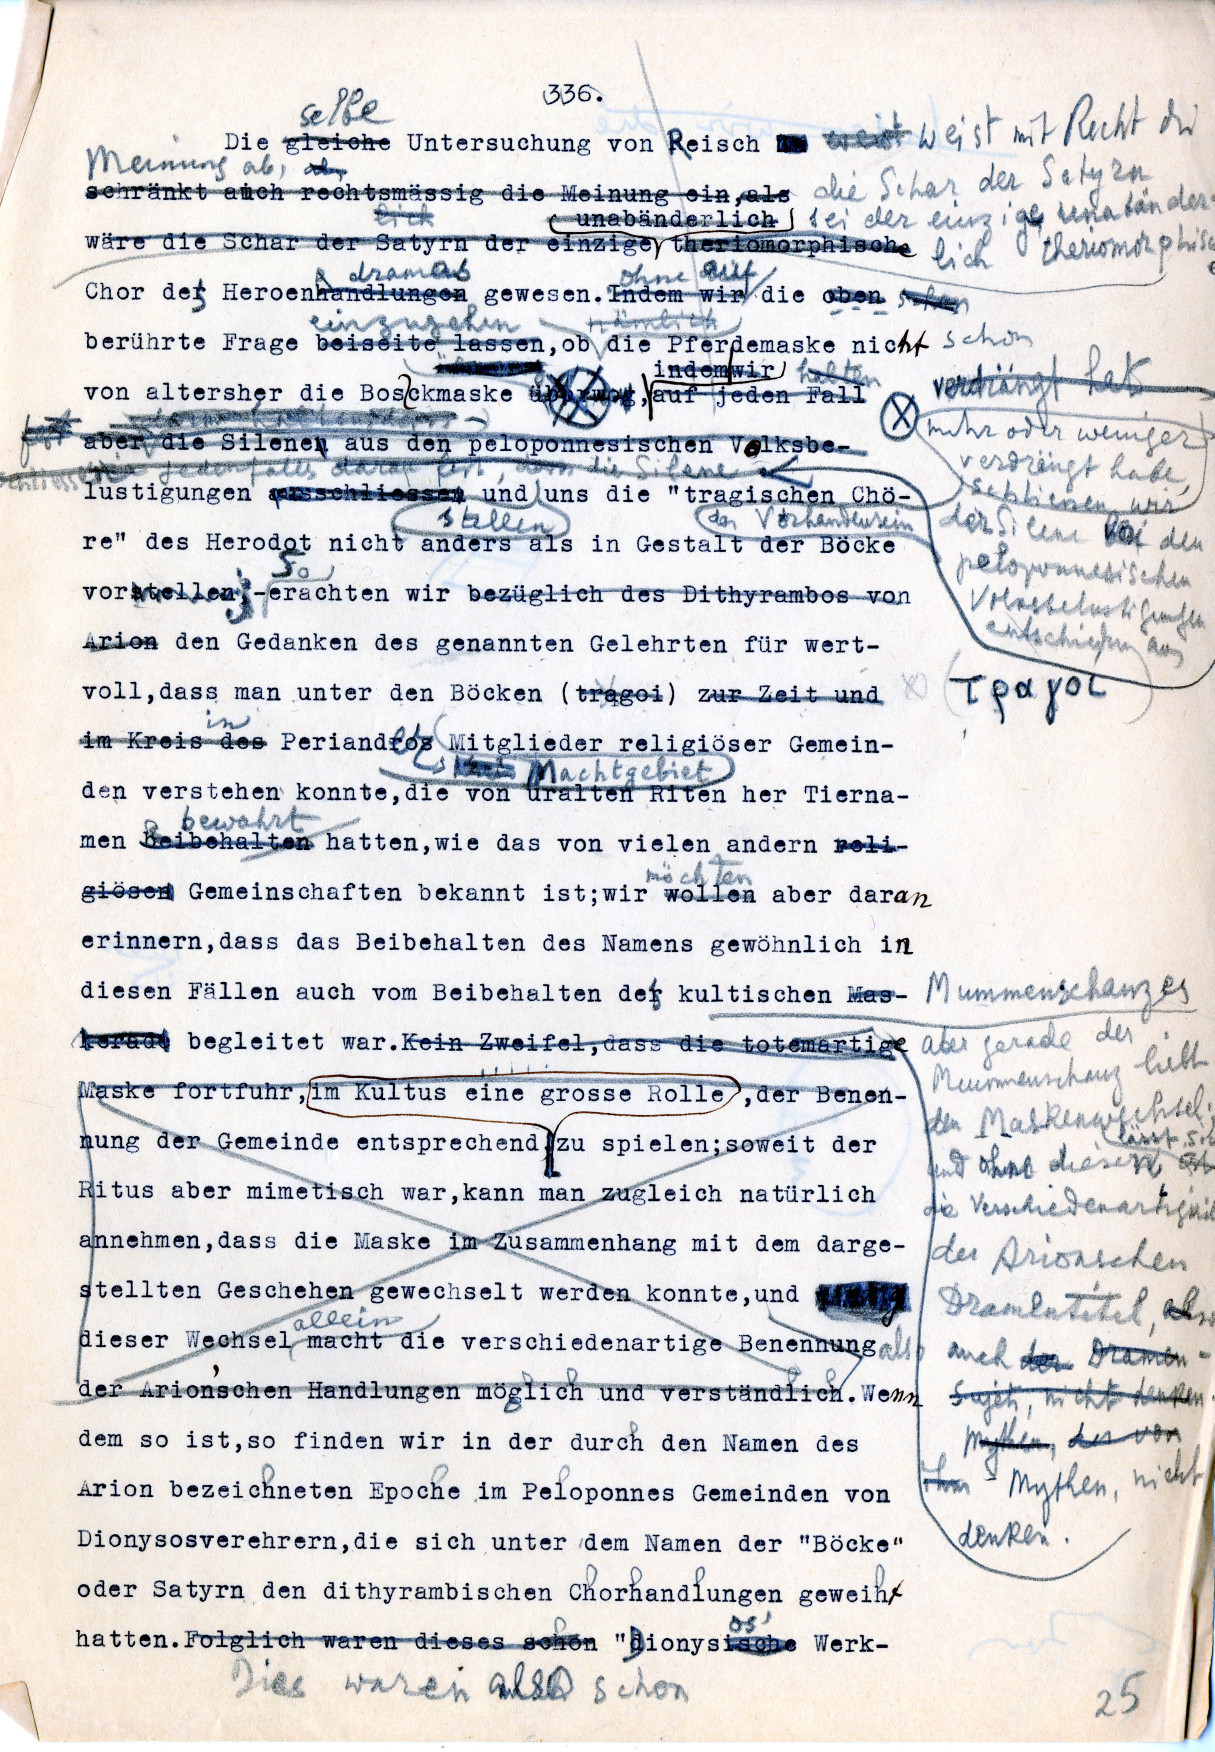 336.
selbe
Die gleiche Untersuchung von Reisch weist mit Recht die
Meinung ab, die Schar der Satyrn
schränkt auch rechtsmässig die Meinung ein, als
unabänderlich sei der einzige, unabänder-
wäre die Schar der Satyrn der einzige theriomorphische
lich theriomorphische
dramas ohne auf
Chor des Heroenhandlungen gewesen. Indem wir die oben
einzugehen nämlich
berührte Frage beiseite lassen, ob die Pferdemaske nicht schon
indem wir halten
von altersher die Bocksmaske überwog, auf jeden Fall
verdrängt hat
mehr oder weniger
verdrängt habe,
schliessen wir
der Silene bei den
peloponnesischen
Volksbelustigungen
entschieden aus
aber die Silenen aus den peloponnesischen Volksbe-
jedenfalls daran fest, dass die Silene
lustigungen ausschliessen und uns die "tragischen Chö-
stellen das Vorhandensein
re" des Herodot nicht anders als in Gestalt der Böcke
so
vorstellen;-erachten wir bezüglich des Dithyrambos von
Arion den Gedanken des genannten Gelehrten für wert-
voll, dass man unter den Böcken (tragoi) zur Zeit und
(τραγοι)
in
im Kreis des Periandros Mitglieder religiöser Gemein-
Machtgebiet
den verstehen konnte, die von uralten Riten her Tierna-
bewahrt
men beibehalten hatten, wie das von vielen andern reli-
möchten
giösen Gemeinschaften bekannt ist; wir wollen aber daran
erinnern, dass das Beibehalten des Namens gewöhnlich in
diesen Fällen auch vom Beibehalten des kultischen Mas-
Mummenschanzes
kerade begleitet war. Kein Zweifel, dass die totemartige
aber gerade der
Mummenschanz liebt
den Maskenwechsel.
lässt sich
und ohne diesen
die Verschiedenartigkeit
der Arionschen
Dramentitel, also
auch der Dramen-
Sujets, nicht denken.
Mythen, der von
ihm - Mythen, nicht
denken.
Maske fortfuhr, im Kultus eine grosse Rolle, der Benen-
nung der Gemeinde entsprechend zu spielen; soweit der
Ritus aber mimetisch war, kann man zugleich natürlich
annehmen, dass die Maske im Zusammenhang mit dem darge-
stellten Geschehen gewechselt werden konnte, und
allein
dieser Wechsel macht die verschiedenartige Benennung also
der Arion'schen Handlungen möglich und verständlich. Wenn
dem so ist, so finden wir in der durch den Namen des
Arion bezeichneten Epoche im Peloponnes Gemeinden von
Dionysosverehrern, die sich unter dem Namen der "Böcke"
oder Satyrn den dithyrambischen Chorhandlungen geweiht
os'
hatten. Folglich waren dieses schon "Dionysische Werk-
Dies waren also schon
25